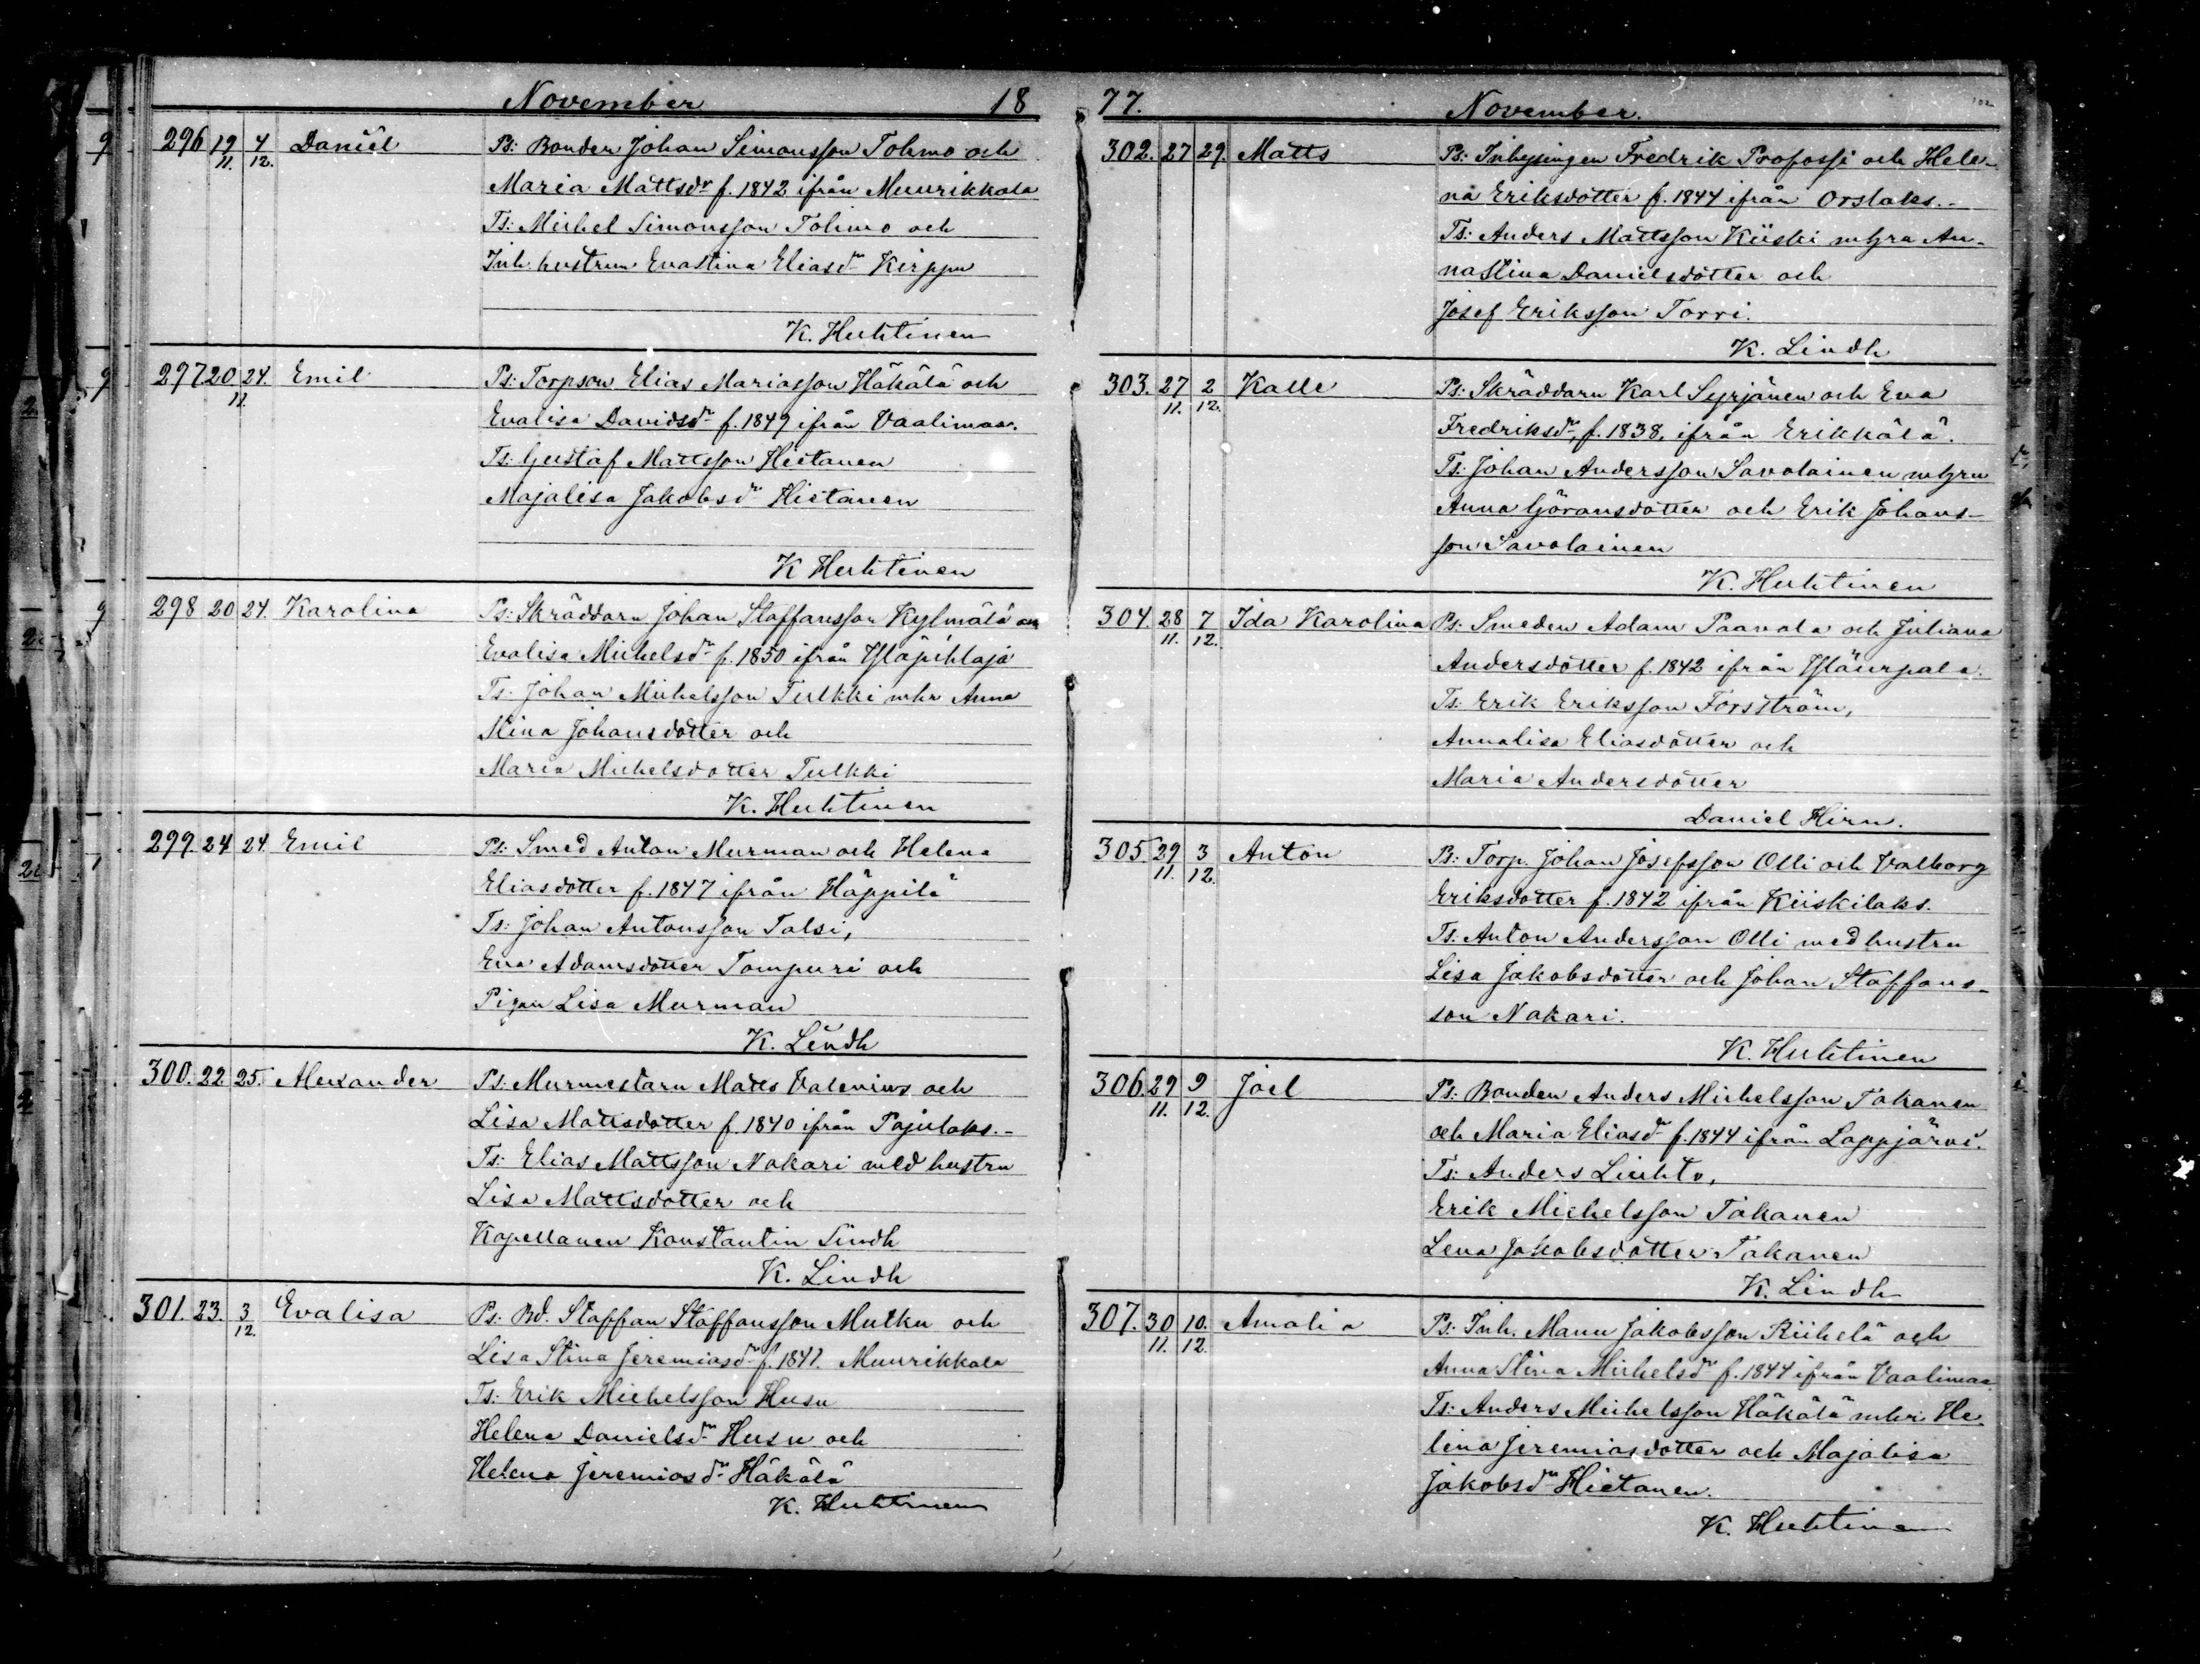 November 18
296 19/11. 4/12. Daniel Ps: Bonden Johan Simonsson Tohmo och
Maria Mattsdr f. 1842 ifrån Muurikkala
Ts: Michel Simonsson Tohmo och
Inh. hustrun Evastina Eliasdr Kirppu
K. Huhtinen
297 20/11. 24. Emil Ps: Torpson Elias Mariasson Häkälä och
Evalisa Davidsdr f. 1849 ifrån Vaalimaa.
Ts: Gustaf Mattsson Hietanen
Majalisa Jakobsdr Hietanen
K Huhtinen
298 20 24. Karolina Ps: Skräddarn Johan Staffansson Kylmälä och
Evalisa Michelsdr f. 1850 ifrån Yläpihlaja
Ts: Johan Michelsson Tulkki mhr Anna
Stina Johansdotter och
Maria Michelsdotter Tulkki
K. Huhtinen
299. 24 24. Emil Ps: Smed Anton Murman och Helena
Eliasdotter f. 1847 ifrån Häppilä
Ts: Johan Antonsson Talsi,
Eva Adamsdotter Tompuri och
Pigan Lisa Murman
K. Lindh
300. 22 25. Alexander Ps: Murmestarn Matts Valenius och
Lisa Mattsdotter f. 1840 ifrån Pajulaks.-
Ts: Elias Mattsson Nakari med hustru
Lisa Mattsdotter och
Kapellanen Konstantin Lindh
K. Lindh
301. 23. 3/12. Evalisa Ps: Bd. Staffan Staffansson Mulku och
Lisa Stina Jeremiasdr f. 1847. Muurikkala
Ts: Erik Michelsson Husu
Helena Danielsdr Husu och
Helena Jeremiasdr Häkälä
K. Huhtinen
77. November.
302. 27 29. Matts Ps: Inhysingen Fredrik Profossi och Hele-
na Eriksdotter f. 1844 ifrån Orslaks.-
Ts: Anders Mattsson Kiiski Anders
nastina Danielsdotter och
Josef Eriksson Torri.
K. Lindh
303. 27/11. 2/12. Kalle Ps: Skräddarn Karl Syrjänen och Eva
Fredriksdr, f. 1838. ifrån Erikkälä.
Ts: Johan Andersson Savolainen
Anna Göransdotter och Erik Johans-
son Savolainen
K. Huhtinen
304. 28/11. 7/12. Ida Karolina Ps: Smeden Adam Paavola och Juliana
Andersdotter f. 1842 ifrån Yläurpala.
Ts: Erik Eriksson Forsström,
Annalisa Eliasdotter och
Maria Andersdotter
Daniel Hirn.
305. 29/11. 3/12. Anton Ps: Torp. Johan Josefsson Olli och Valborg
Eriksdotter f. 1842 ifrån Kiiskilaks.
Ts. Anton Andersson Olli med hustru
Lisa Jakobsdotter och Johan Staffans-
son Nakari.
K. Huhtinen
306. 29/11. 9/12. Joel Ps: Bonden Anders Michelsson Takanen
och Maria Eliasdr f. 1844 ifrån Lappjärvi.
Ts: Anders Liuhto,
Erik Michelsson Takanen
Lena Jakobsdotter Takanen
K. Lindh
307. 30/11. 10./12. Amalia Ps: Inh. Manu Jakobsson Riihelä och
Anna Stina Michelsdr f. 1844 ifrån Vaalimaa
Ts: Anders Michelsson Häkälä mhr He
lena Jeremiasdotter och Majalisa
Jakobsdr Hietanen.
K. Huhtinen